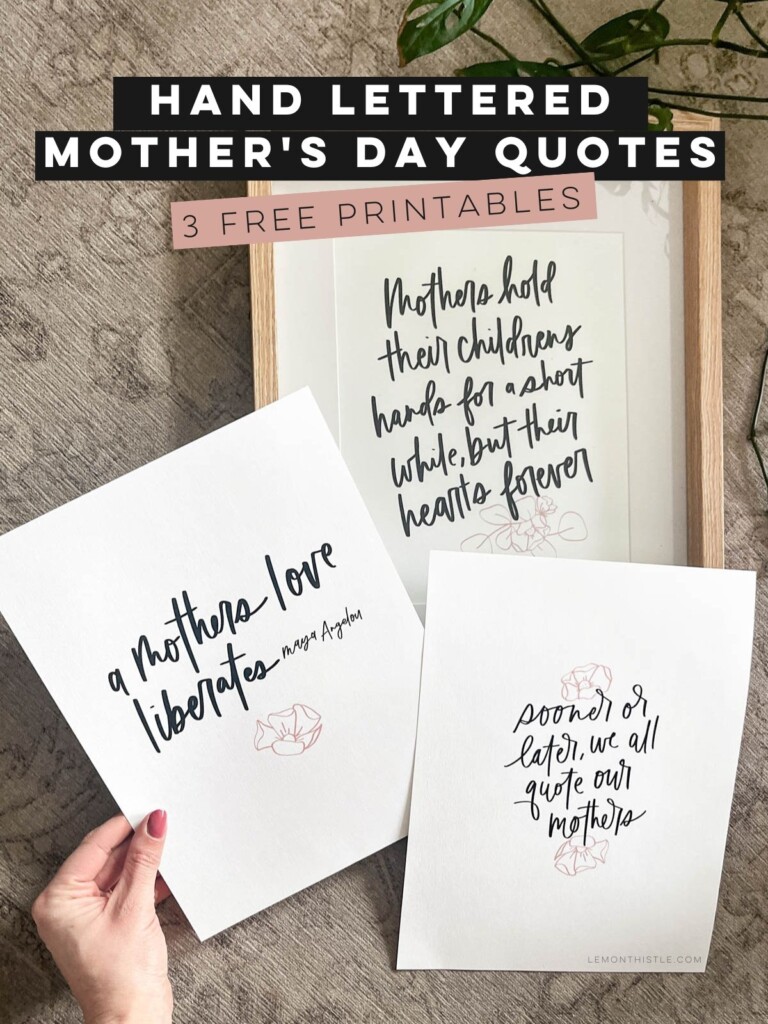 HAND LETTERED
MOTHER'S DAY QUOTES
3 FREE PRINTABLES
Mothers hold
their childrens
hands for a short
while, but their
hearts forever
a mothers love
liberates maya Angelou
sooner or
later, we all
quote our
mothers
LEMONTHISTLE.COM